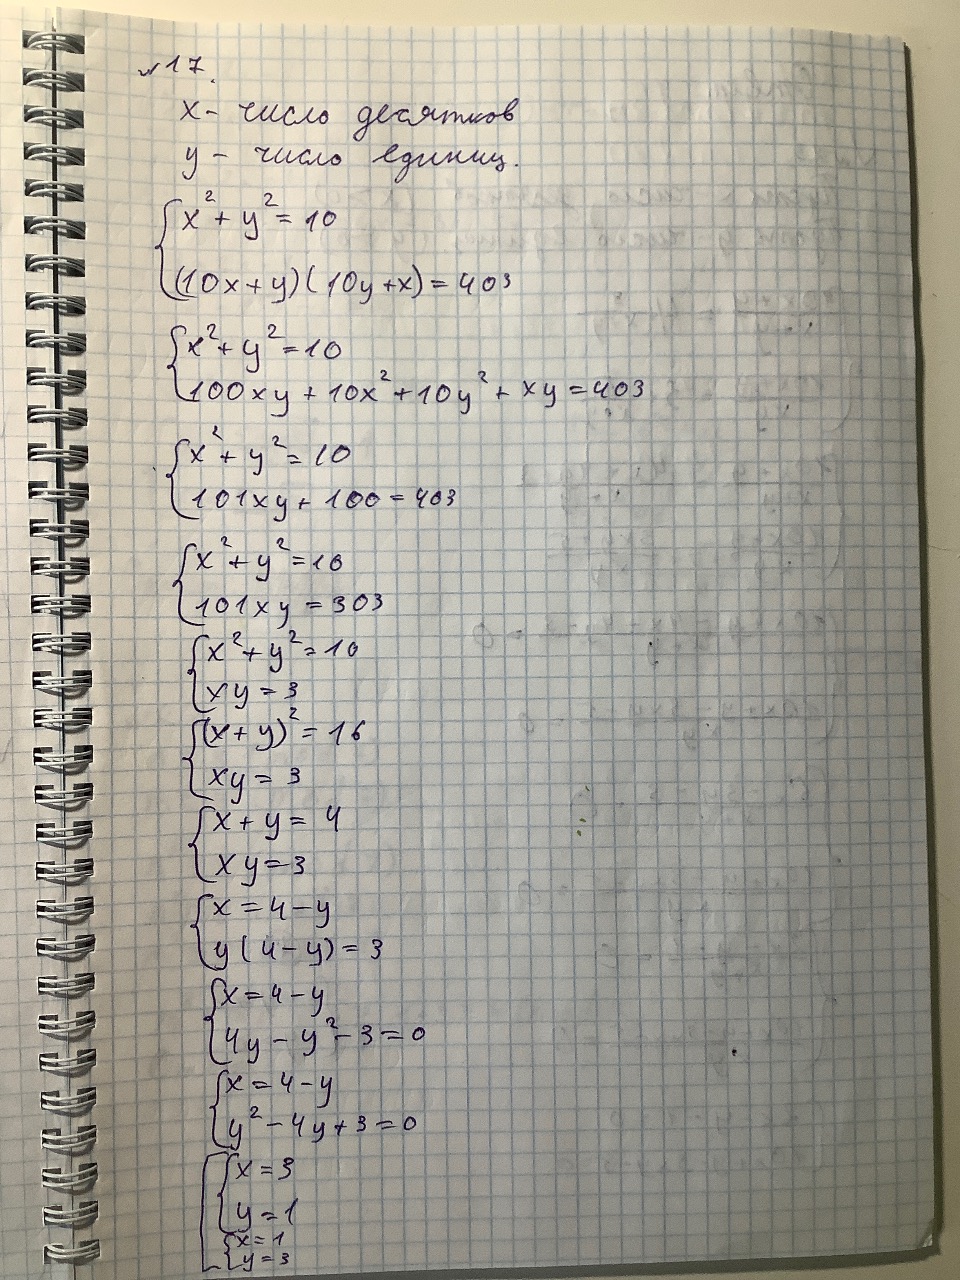 №17.
x - число десятков
y - число единиц.
x² + y² = 10
(10x+y)(10y+x) = 403
x² + y² = 10
100xy + 10x² + 10y² + xy = 403
x² + y² = 10
101xy + 100 = 403
x² + y² = 10
101xy = 303
x² + y² = 10
xy = 3
(x+y)² = 16
xy = 3
x + y = 4
xy = 3
x = 4 - y
y(4-y) = 3
x = 4 - y
4y - y² - 3 = 0
x = 4 - y
y² - 4y + 3 = 0
x = 3
y = 1
x = 1
y = 3